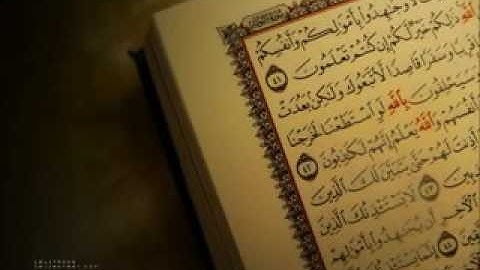 وَجَٰهِدُوا۟ بِأَمْوَٰلِكُمْ وَأَنفُسِكُمْ
ٱللَّهِ ذَٰلِكُمْ خَيْرٌ لَّكُمْ إِن كُنتُمْ تَعْلَمُونَ ٤١
قَرِيبًا وَسَفَرًا قَاصِدًا لَّٱتَّبَعُوكَ وَلَٰكِنۢ بَعُدَتْ
سَيَحْلِفُونَ بِٱللَّهِ لَوِ ٱسْتَطَعْنَا لَخَرَجْنَا
أَنفُسَهُمْ وَٱللَّهُ يَعْلَمُ إِنَّهُمْ لَكَٰذِبُونَ ٤٢
أَذِنتَ لَهُمْ حَتَّىٰ يَتَبَيَّنَ لَكَ ٱلَّذِينَ
٤٣ لَا يَسْتَـْٔذِنُكَ ٱلَّذِينَ
ٱلْـَٔاخِرِ أَن يُجَٰهِدُوا۟ بِأَمْوَٰلِهِمْ
٤٤ إِنَّمَا يَسْتَـْٔذِنُكَ